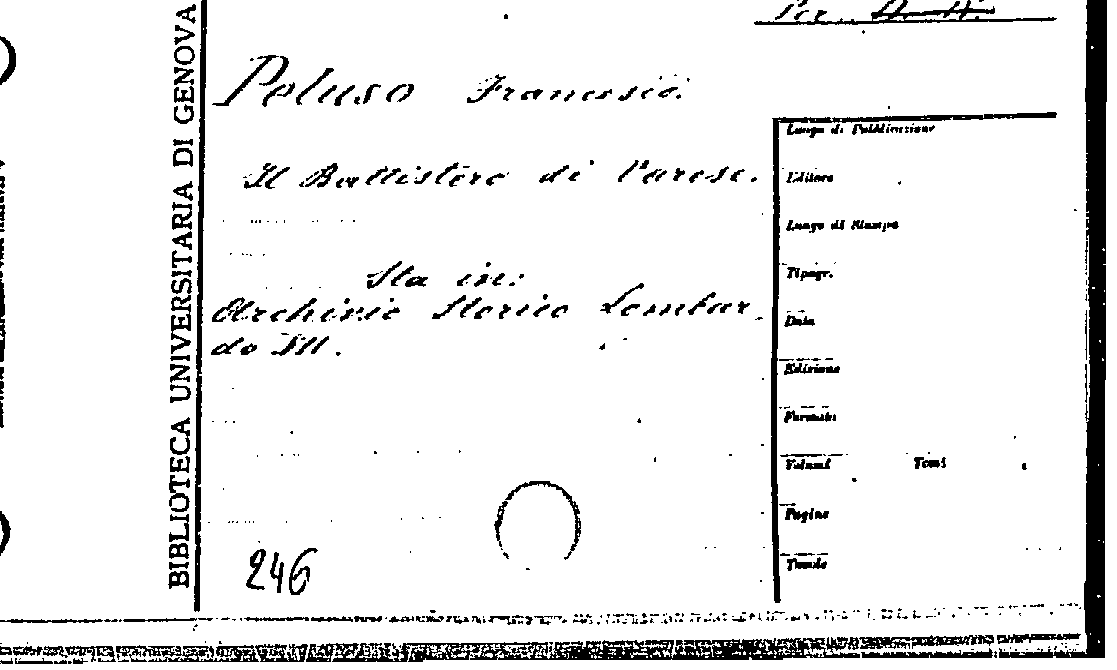 Per. D. H.
BIBLIOTECA UNIVERSITARIA DI GENOVA
Peluso Francesco.
Il Battistero di Varese.
Sta in:
Archivio Storico Lombar
do III.
246
Luogo di Pubblicazione
Editore
Luogo di Stampa
Tipogr.
Data
Edizione
Formato
Volumi Tomi
Pagine
Tavole